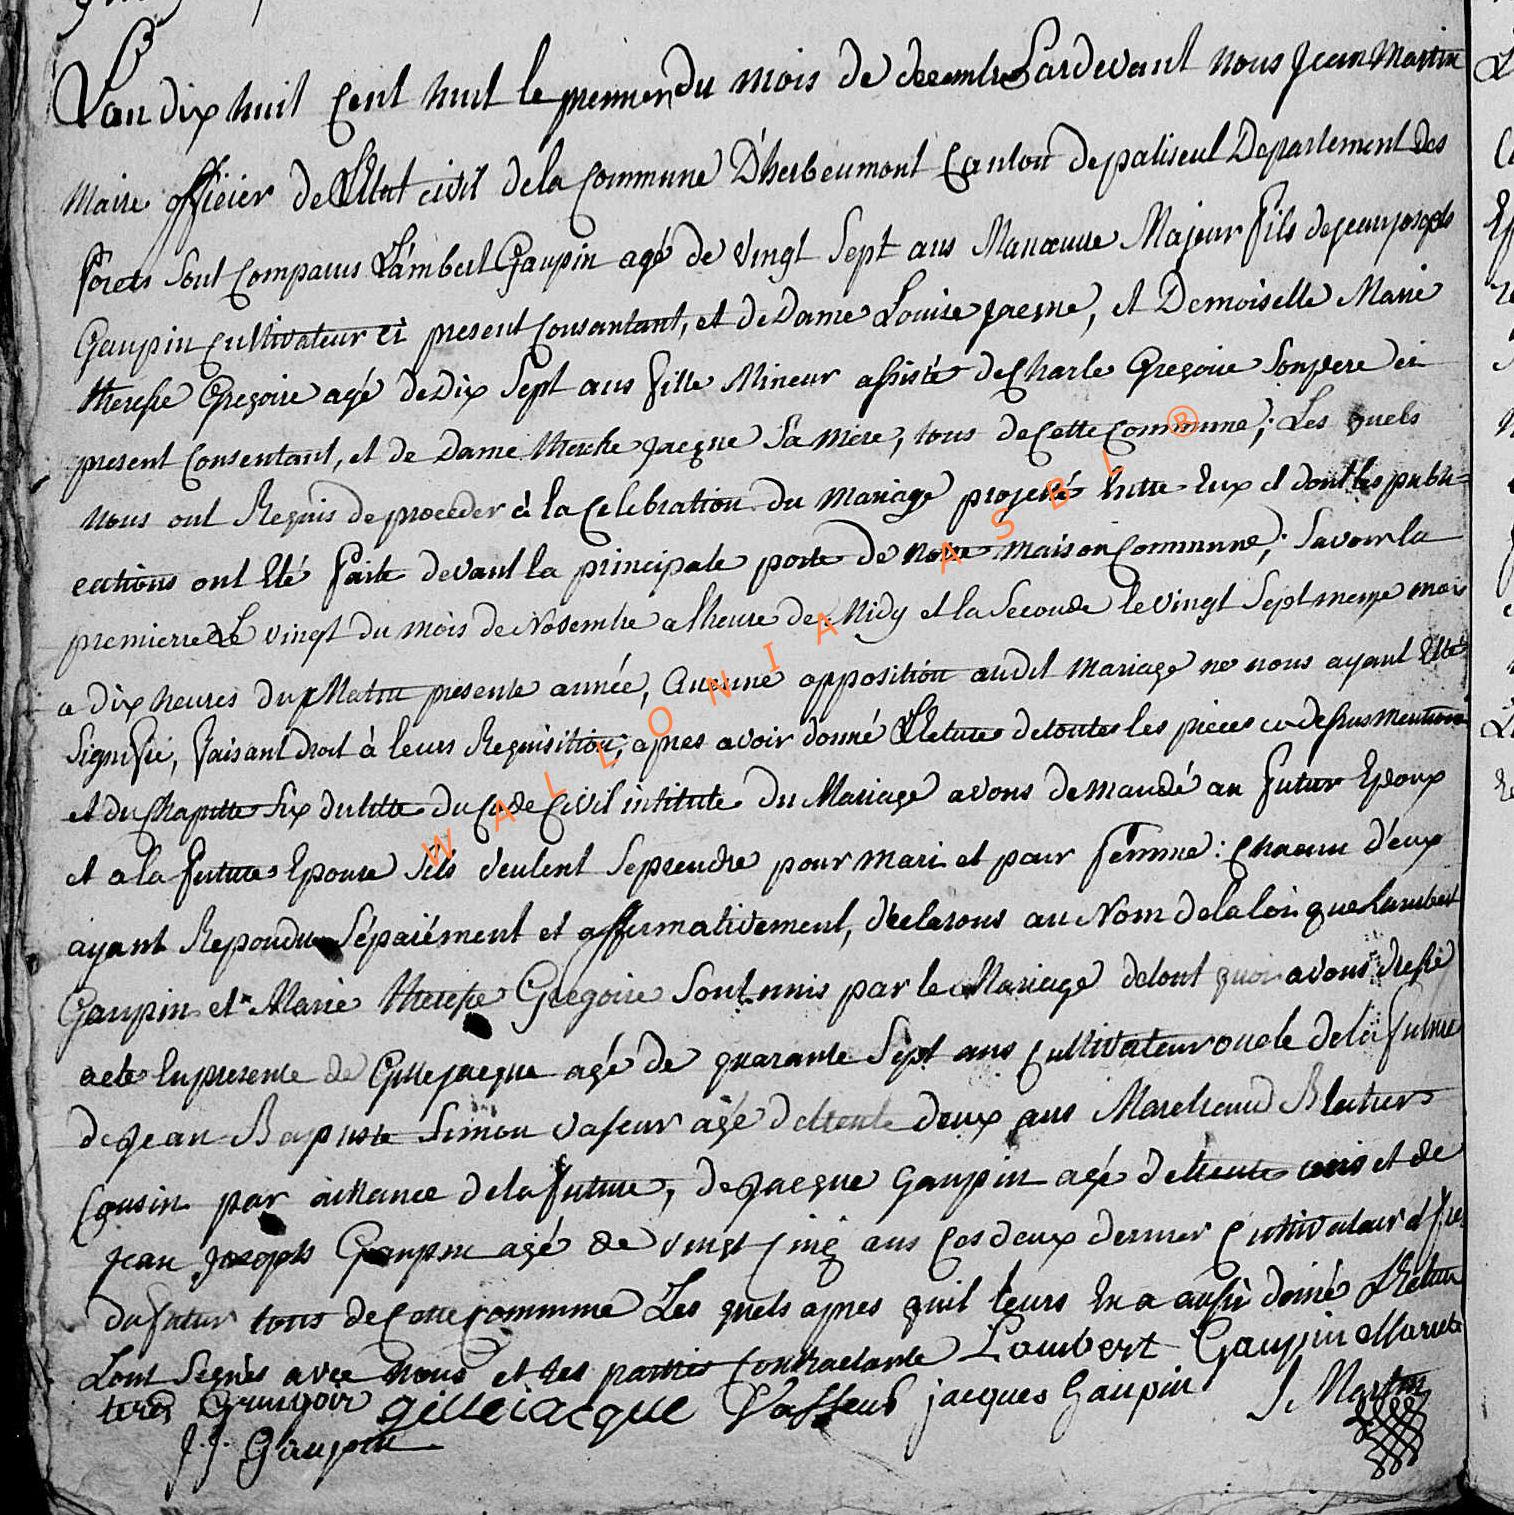 L'an dix huit Cent huit le premier du mois de decembre Pardevant nous Jean Martin
Maire officier de L'Etat civil de la Commune D'herbeumont Canton de paliseul Departement des
forets Sont Comparus Lambert Gaupin agé de vingt Sept ans Manœuvre Majeur fils de jean joseph
Gaupin Cultivateur ci present Consantant, et de Dame Louise jacque, et Demoiselle Marie
therese Gregoire agé de Dix Sept ans fille Mineur assisté de Charle Gregoire Son pere ci
present Consentant, et de Dame therese jacque Sa mere, tous de Cette Commune; Les quels
nous ont Requis de proceder à la Celebration du Mariage projetté Entre Eux et dont les publi=
cations ont Eté faite devant la principale porte de notre maison Commune; Savoir la
premierre Le vingt du mois de Novembre a lheure de Midy et la Seconde le vingt Sept meme mois
a dix heures du Matin presente année, Aucune opposition audit mariage ne nous ayant Etté
Signifié, faisant droit à leurs Requisition, apres avoir donné Lecture de toutes les pieces cy dessus mentioné
et du Chapitre Six du titre du Code Civil intitule du Mariage avons demandé au futur Epoux
et a la future Epouse S'ils veulent Se prendre pour mari et pour femme: Chacun d'eux
ayant Repondu Séparément et affirmativement, declarons au Nom de la loi que Lambert
Gaupin et Marie therese Gregoire Sont unis par le Mariage de tout quoi avons dressé
acte En presence de Gille jacque agé de quarante Sept ans Cultivateur oncle de la future
de Jean Baptiste Simon vaseur agé de trente deux ans Marchand
Cousin par aillance de la future, de Jacque Gaupin agé de trente trois et de
Jean Joseph Gaupin agé de vingt Cinq ans Ces deux dernier Cultivateur et
du futur tous de Cette Commune Les quels apres quil leurs En a aussi donné Lecture
L'ont Signés avec nous et les parties Contractante Lambert Gaupin Marie
teres Grungoir gille iacque Vasseur jacques Gaupin J. Martin
J.J. Gaupin
WALLONIA ASBL ®